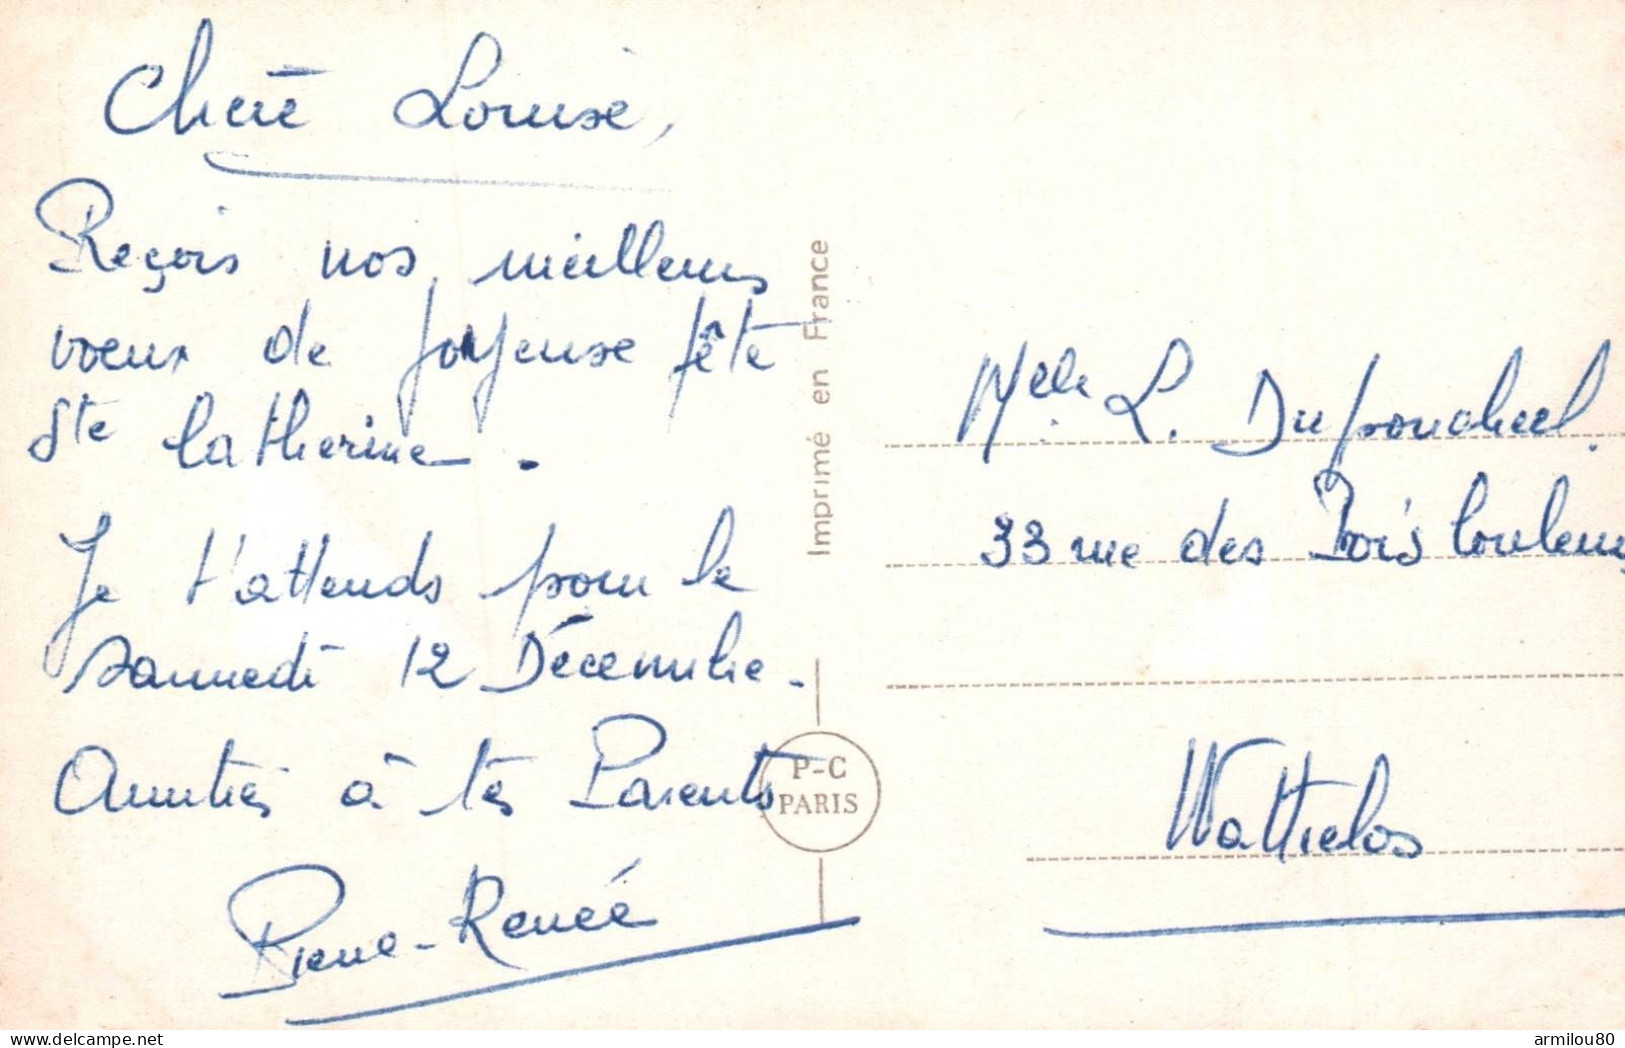 Chère Louise,
Reçois nos meilleurs
vœux de joyeuse fête
Ste Catherine.
Je t'attends pour le
samedi 12 Décembre.
Amitiés à tes Parents
Pierre-Renée
Imprimé en France
P-C
PARIS
Melle L. Duponcheel.
33 rue des Bois Couleurs
Wattrelos
delcampe.net
armilou80